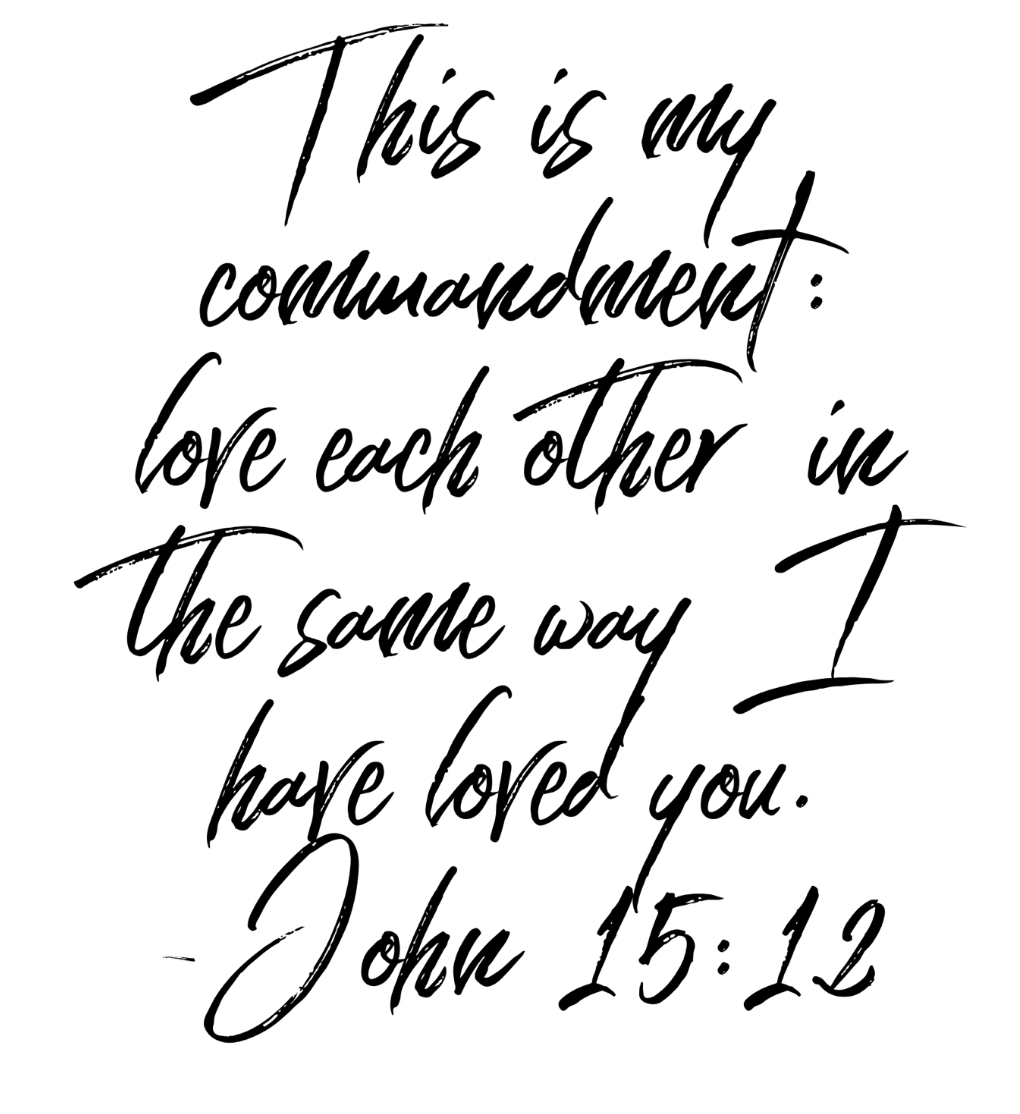 This is my
commandment:
love each other in
the same way I
have loved you.
-John 15:12